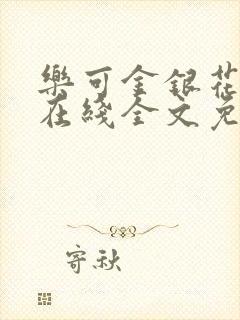 樂可金銀花
在綫全文免
寄秋